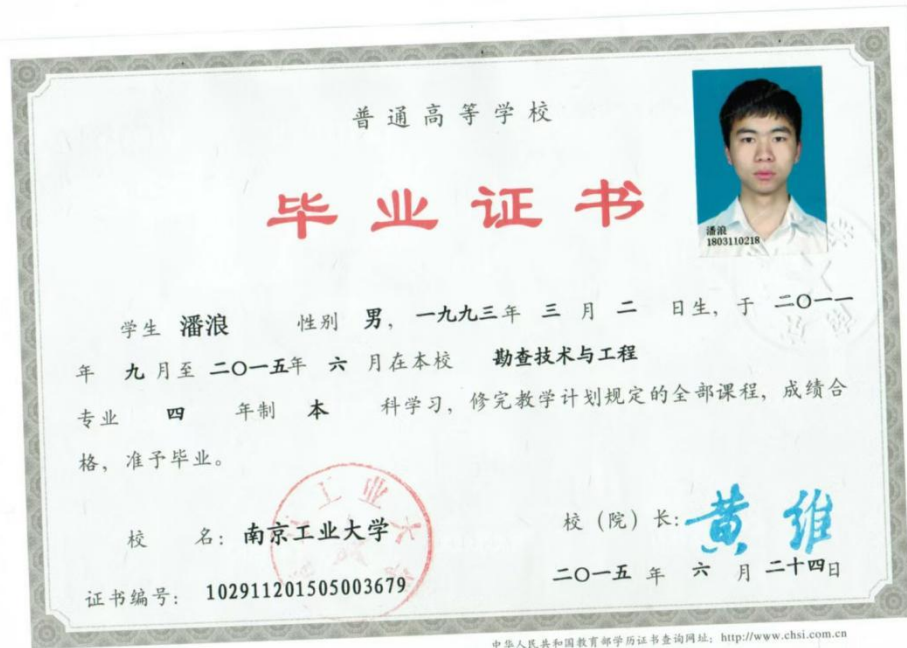 普通高等学校
毕业证书
潘浪
1803110218
学生 潘浪 性别 男，一九九三年 三 月 二 日生，于 二〇一一
年 九 月至 二〇一五年 六 月在本校 勘查技术与工程
专业 四 年制 本 科学习，修完教学计划规定的全部课程，成绩合
格，准予毕业。
校 名：南京工业大学 校（院）长：黄维
证书编号：102911201505003679 二〇一五 年 六 月 二十四日
中华人民共和国教育部学历证书查询网址：http://www.chsi.com.cn